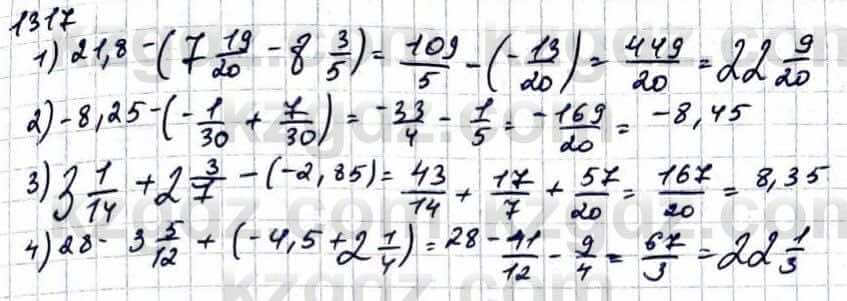 1317
1) 21,8 - (7 19/20 - 8 3/5) = 109/5 - (- 13/20) = 449/20 = 22 9/20
2) -8,25 - (- 1/30 + 7/30) = -33/4 - 1/5 = -169/20 = -8,45
3) 3 1/14 + 2 3/7 - (-2,85) = 43/14 + 17/7 + 57/20 = 167/20 = 8,35
4) 28 - 3 5/12 + (-4,5 + 2 1/4) = 28 - 41/12 - 9/4 = 67/3 = 22 1/3